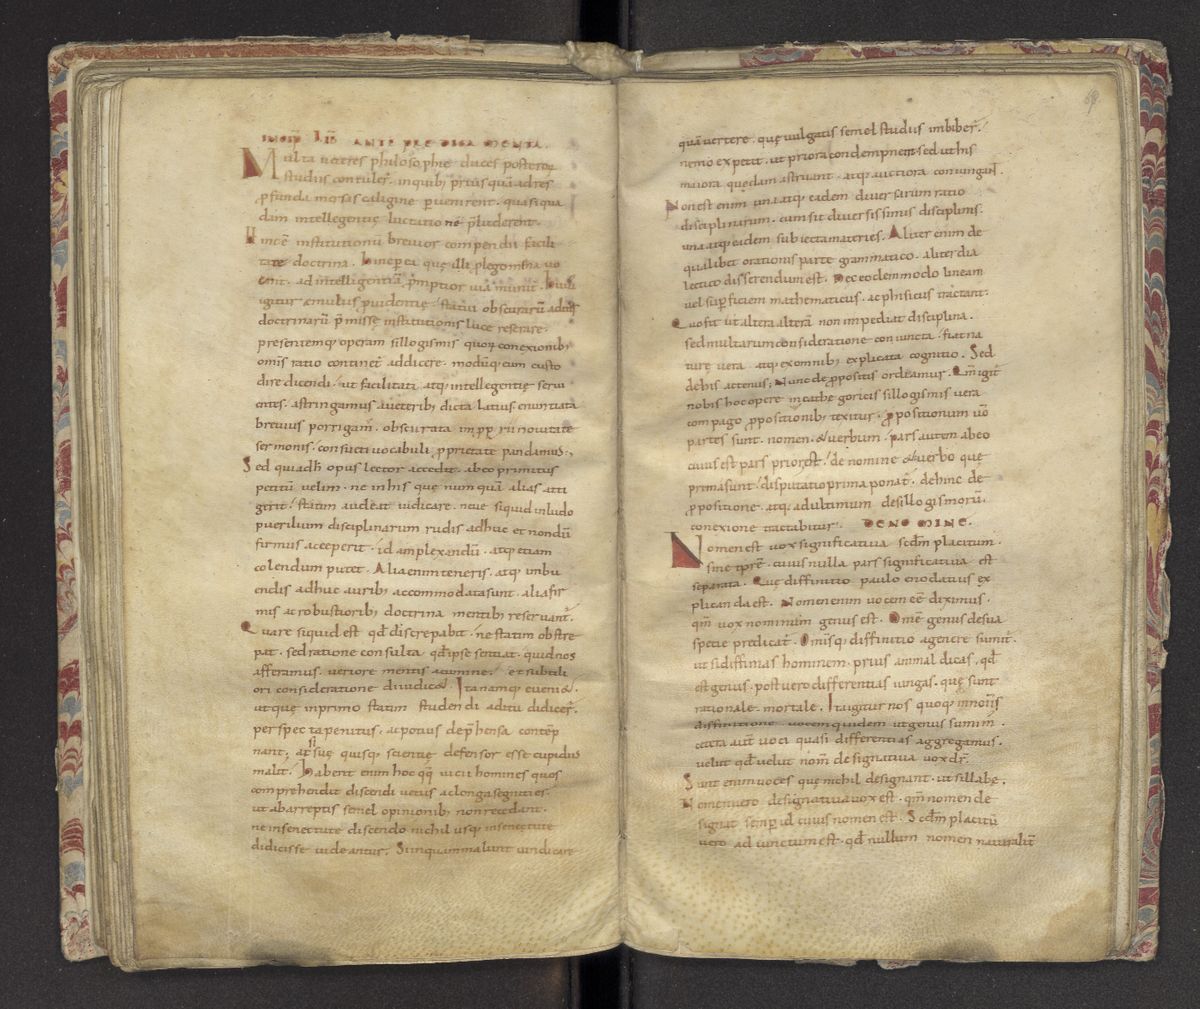 INCIP LIB ANTE PREDICAMENTA.
Multa veteres philosophie duces posterorꝫ
studiis contuler̄. in quib; prius quā ad res
ꝓfunda mersas caligine ꝑvenirent. quasi qua
dam intellegentię luctatio ne p̄luderent.
Hinc ē institutionū brevior compendii facili
tate doctrina. Hinc per ea quę illi prolegomena vo
cant. ad intelligentiā p̄mptior via munit̄. Huius
igitur emulus ꝓuidentię. statui obscurarū aditus
doctrinarū p̄missę institutionis luce reserare.
presentemque operam sillogismis quorꝫ conexionib;
omis ratio continet̄ addicere. modūq; eum custo
dire dicendi. ut facilitati atq; intellegentię servi
entes. astringamus aucterib; dicta latius. enuntiata
brevius porrigam̄. obscurata impꝓriū novitate
sermonis. consueti vocabuli ꝓprietate pandamus;
Sed quia ad h̄ opus lector accedet. ab eo primitus
petitū velim. ne in his que num quā alias atti
gerit. statim audeat iudicare. neve siquid in ludo
puerilium disciplinarum rudis adhuc et nondū
firmus acceperit. id amplexandū. atq; etiam
colendum putet. Alia enim teneris. atq; imbu
endis adhuc aurib; accommodata sunt. alia fir
mis ac robustiorib; doctrina mentib; reservant̄.
Quare siquid est qd̄ discrepabit. ne statim obstre
pat. sed ratione consulta qd̄ ipse sentiat. quid nos
afferamus. veriore mentis acumine. et subtili
ori consideratione diiudic&. Ita namq; eveni&.
ut que inprimo statim studendi aditu didicer̄.
perspecta penitus. ac potius dep̄hensa contēp
nant. at si suę quisq; scientię defensor esse cupidus
malit. Haberet enim hoc q̄q; vicii homines quos
comprehendit discendi vetus ac longa segnities.
ut ab arreptis semel opinionib; non recedant.
ne in senectute discendo nichil usq; in senectute
didicisse videantur. Si nunquam malunt vindicare
quā vertere. quę vulgatis semel studiis imbiber̄.
nemo expetit. ut priora condempnem sed ut his
maiora quędam astruant. atq; auctiora coniungant.
Non est enim una atq; eadem diversarum ratio
disciplinarum. cum sit diversissimus disciplinis.
una atq; eadem subiecta materies. Aliter enim de
qualibet orationis parte grammatico. aliter dia
lectico disserendum est. Nec eodem modo lineam
vel suꝑficiem mathematicus. ac phisicus tractant.
Quo fit ut altera alterā non impediat disciplina.
sed multarum consideratione coniuncta. fiat na
turę vera. atq; ex omnib; explicata cognitio. Sed
de his actenus; Nunc de ꝓpositis ordeamur. Qm̄ igit̄
nobis hoc opere in cathegoricis sillogismis vera
compago ꝓpositionib; texitur. Ꝓpositionum v̄o
partes sunt. nomen. & verbum. pars autem ab eo
cuius est pars prior est. de nomine & verbo que
prima sunt. disputatio prima ponat̄. dehinc de
ꝓpositione. atq; ad ultimum de sillogismorū.
conexione tractabitur. DE NOMINE.
Nomen est vox significativa scdm̄ placitum.
sine tp̄re. cuius nulla pars significativa est
separata. Quę diffinitio paulo enodatius ex
plicanda est. Nomen enim vocem eē diximus.
qm̄ vox nominum genus est. Omē genus de sua
specie predicat̄. Omīsq; diffinitio a genere sumit̄.
ut si diffinias hominem. prius animal dicas. qd̄
est genus. post vero differentias iungas. quę sunt
rationale. mortale. Ita igitur nos quoq; in noīs
diffinitione vocem quidem ut genus sumim̄.
cetera aut̄ voci quasi differentias aggregamus.
velut qd̄ velut nom̄ designativa vox dr̄.
Sunt enim voces quę nichil designant. ut sillabę.
Nomen vero designativa vox est. qm̄ nomen de
signat semꝑ id cuius nomen est. Scdm̄ placitū
vero adiunctum est. qd̄ nullum nomen naturalit̄